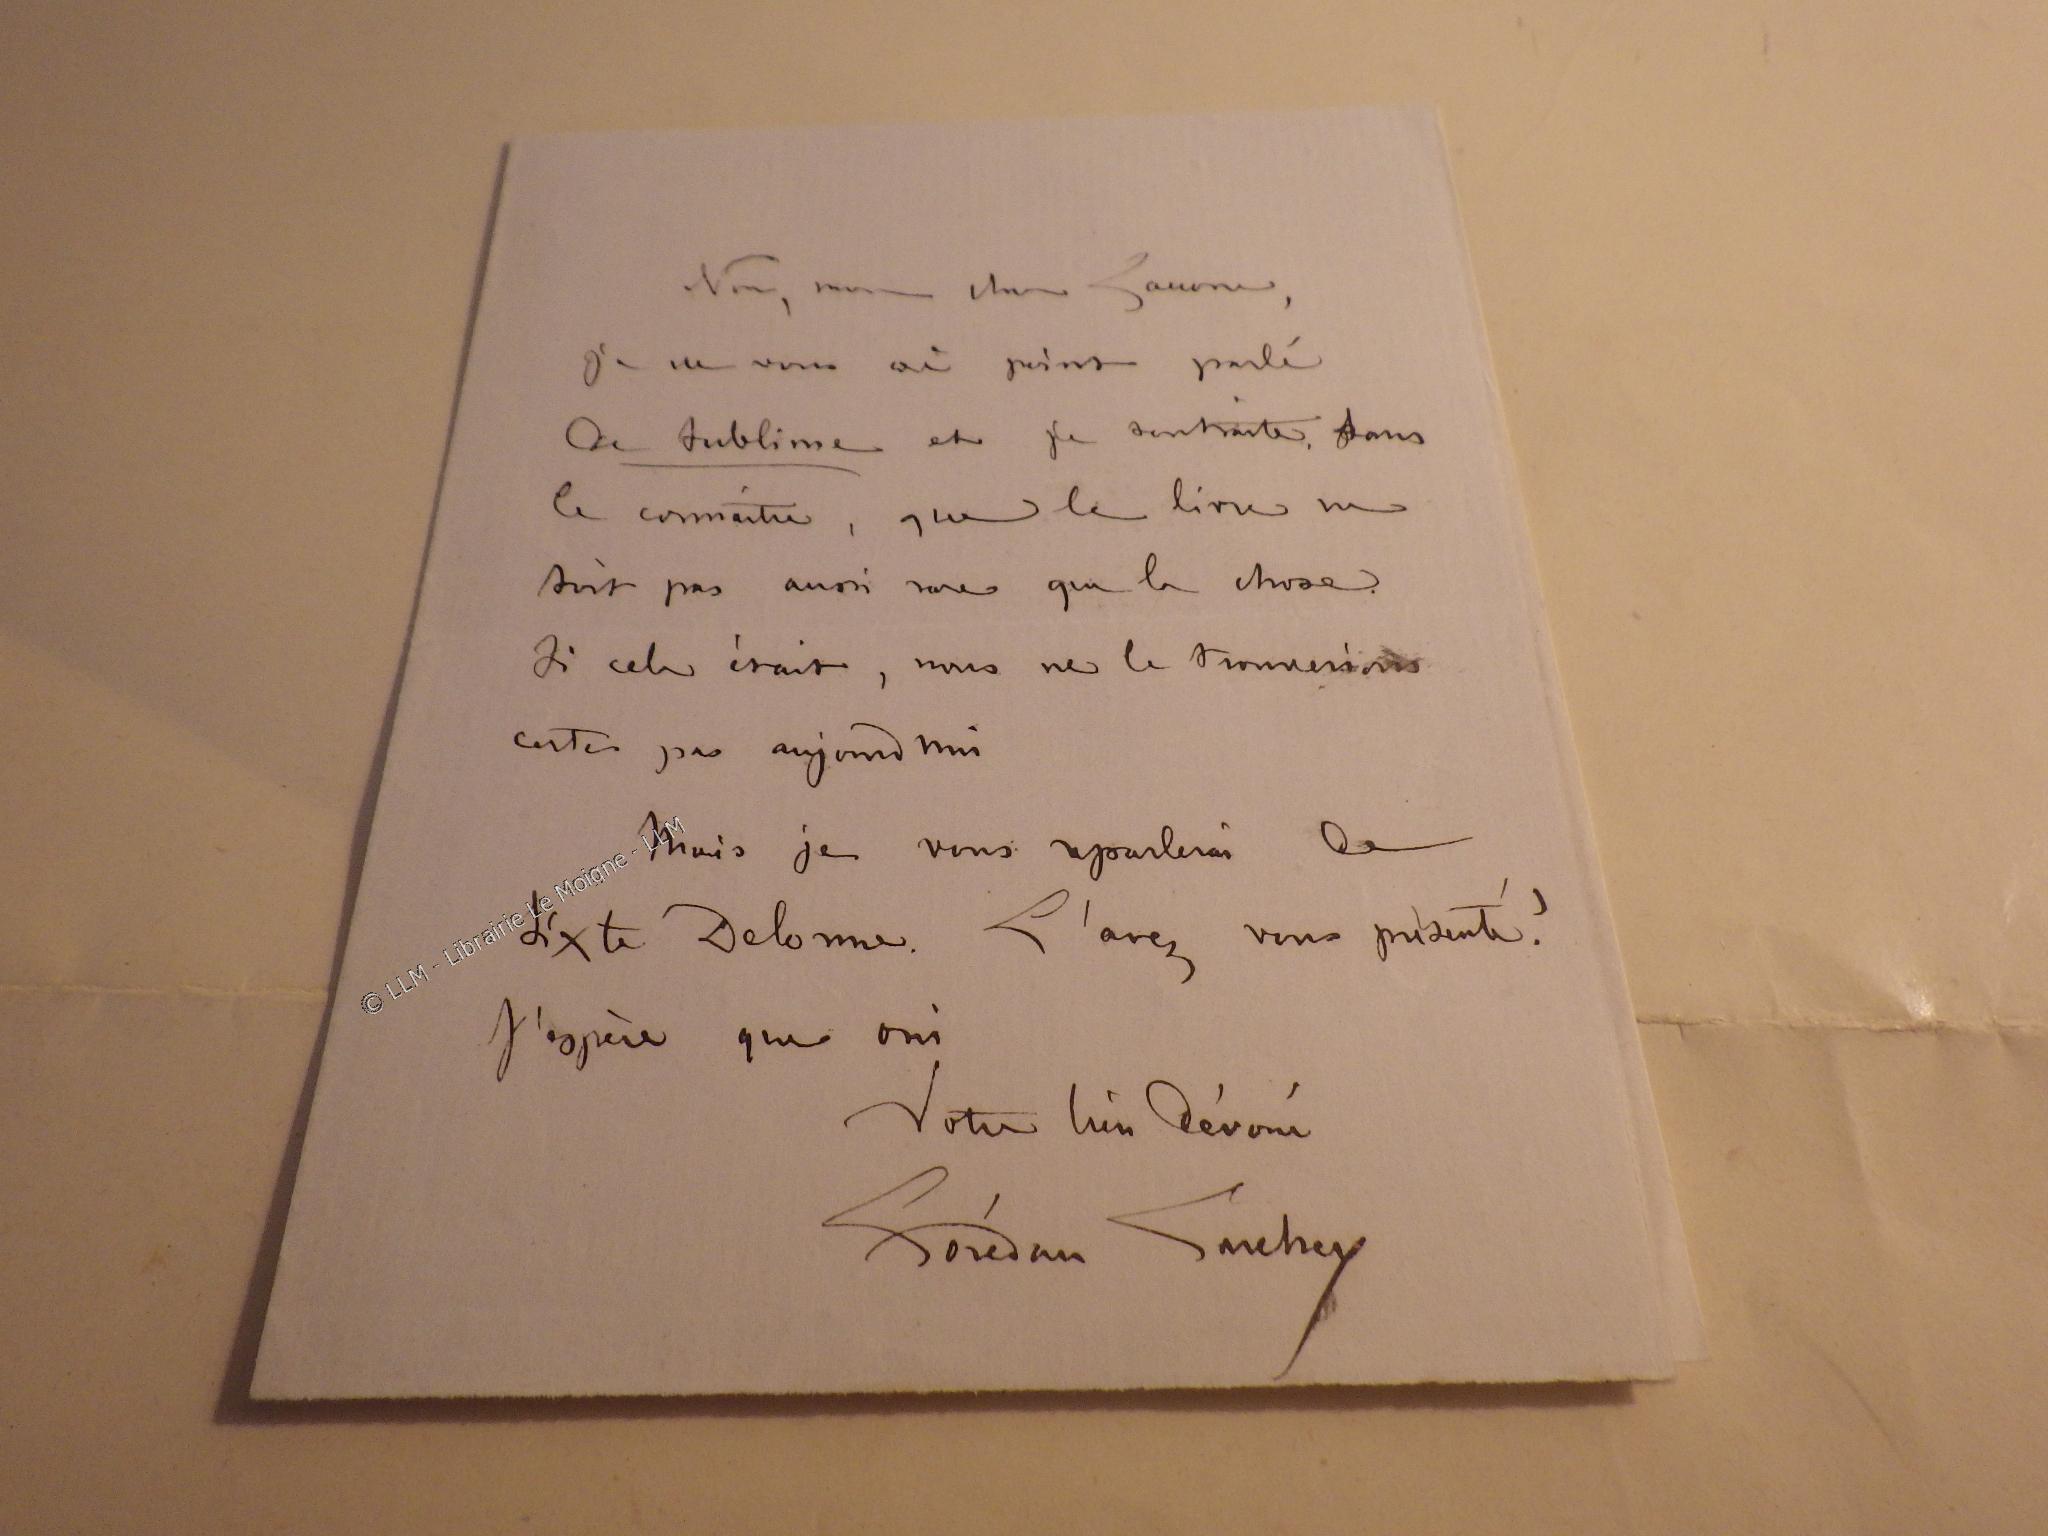 Non, mon cher
je ne vous ai point parlé
de sublime et je souhaite, sans
le connaître, que le livre ne
soit pas aussi rare que la chose.
Si cela était, nous ne le trouverions
certes pas aujourd'hui
Mais je vous reparlerai de
Sixte Delorme. L'avez vous présenté?
J'espère que oui
Votre bien dévoué
Lorédan Larchey
© LLM - Librairie Le Moigne - LLM